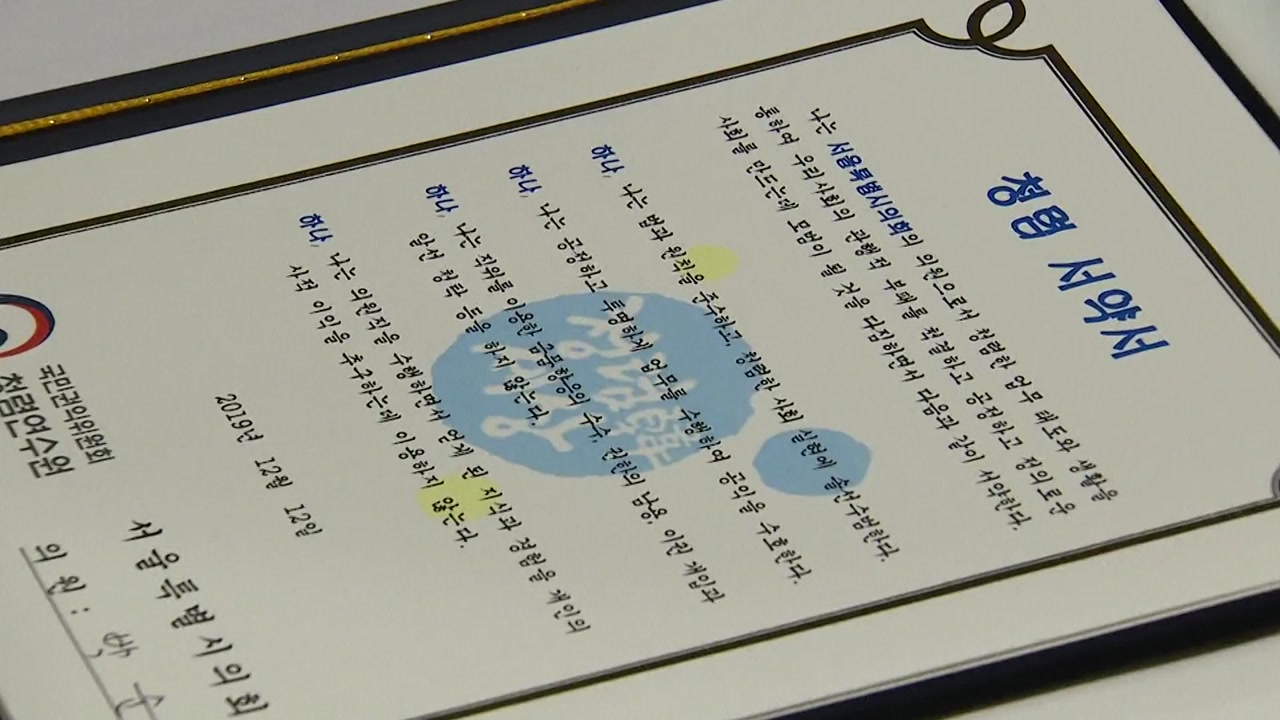 청렴 서약서
나는 서울특별시의회의 의원으로서 청렴한 업무 태도와 생활을
통하여 우리사회의 관행적 부패를 척결하고 공정하고 정의로운
사회를 만드는데 모범이 될 것을 다짐하면서 다음과 같이 서약한다.
하나, 나는 법과 원칙을 준수하고, 청렴한 사회 실현에 솔선수범한다.
하나, 나는 공정하고 투명하게 업무를 수행하여 공익을 수호한다.
하나, 나는 직위를 이용한 금품향응의 수수, 권한의 남용, 이권 개입과
알선 청탁 등을 하지 않는다.
하나, 나는 의원직을 수행하면서 얻게 된 지식과 경험을 개인의
사적 이익을 추구하는데 이용하지 않는다.
2019년 12월 12일
국민권익위원회
청렴연수원
서울특별시의회
의 원 : 박 순